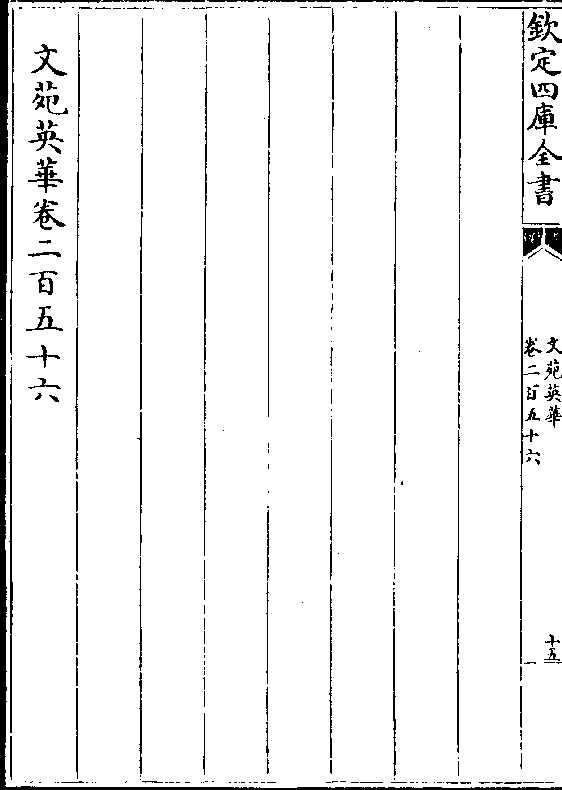 欽定四庫全書
文苑英華
卷二百五十六
十五
文苑英華卷二百五十六